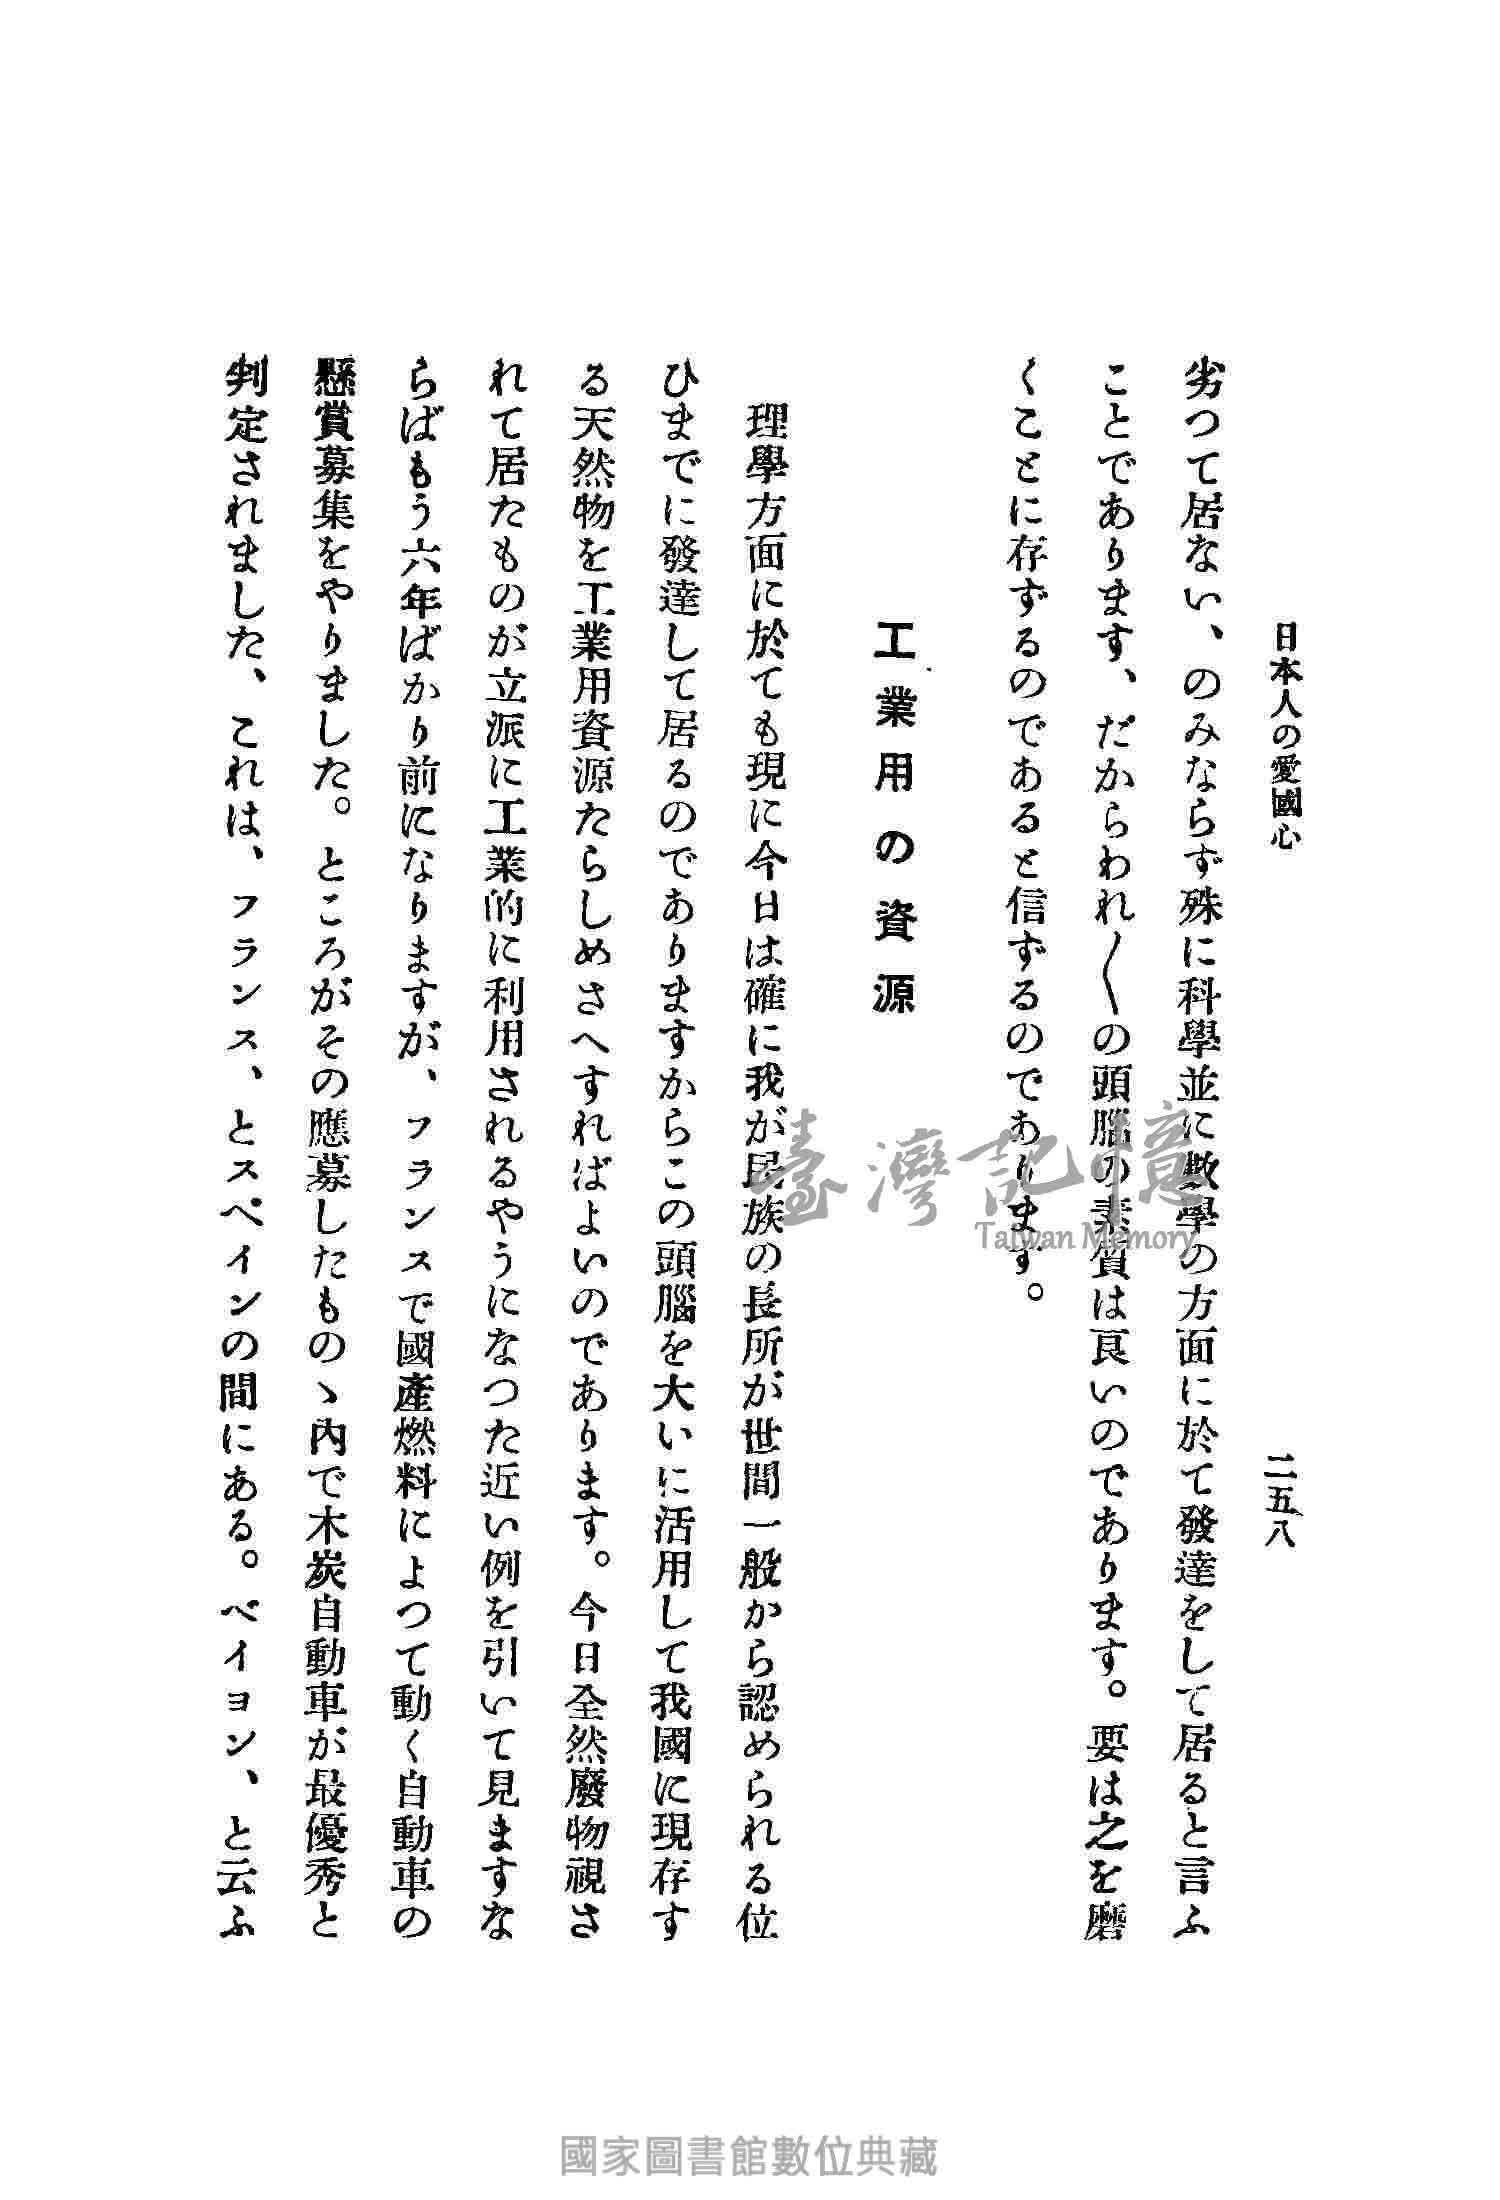 日本人の愛國心
二五八
劣つて居ない、のみならず殊に科學並に數學の方面に於て發達をして居ると言ふ
ことであります、だからわれ〱の頭腦の素質は良いのであります。要は之を磨
くことに存ずるのであると信ずるのであります。
工業用の資源
理學方面に於ても現に今日は確に我が民族の長所が世間一般から認められる位
ひまでに發達して居るのでありますからこの頭腦を大いに活用して我國に現存す
る天然物を工業用資源たらしめさへすればよいのであります。今日全然廢物視さ
れて居たものが立派に工業的に利用されるやうになつた近い例を引いて見ますな
らばもう六年ばかり前になりますが、フランスで國產燃料によつて動く自動車の
懸賞募集をやりました。ところがその應募したものゝ內で木炭自動車が最優秀と
判定されました、これは、フランス、とスペインの間にある。ベイヨン、と云ふ
臺灣記憶
Taiwan Memory
國家圖書館數位典藏